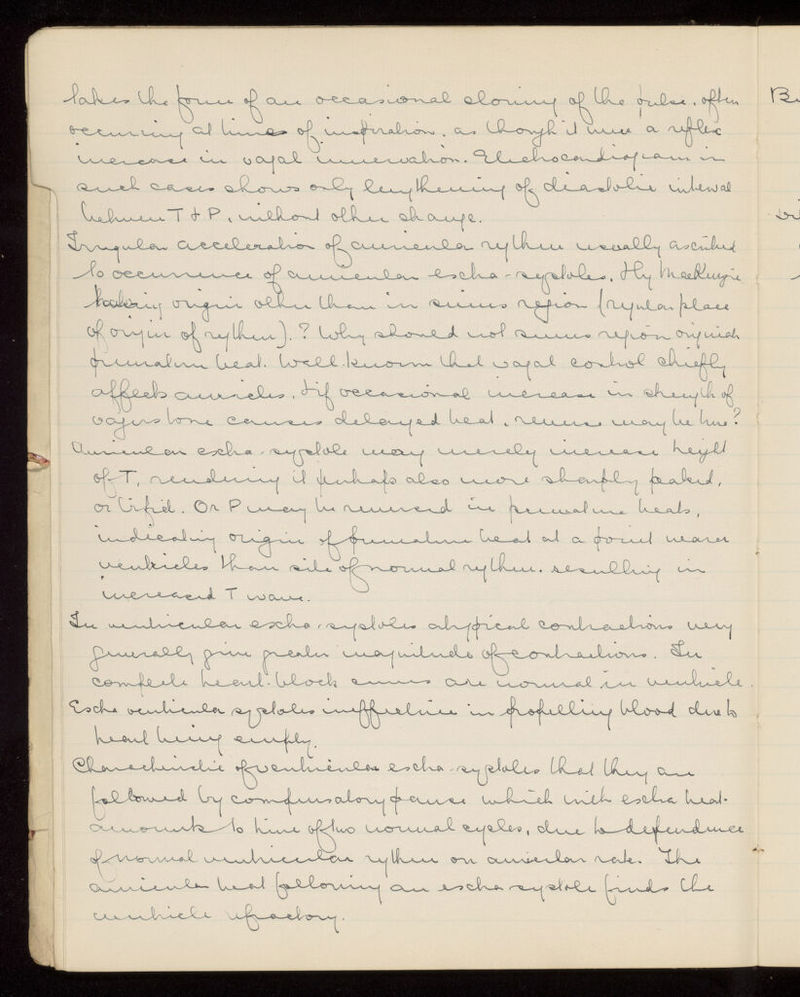 takes the form of an occasional slowing of the pulse, often
occurring at times of inspiration, as though it were a reflex
increase in vagal innervation. Electrocardiogram in
such cases shows only lengthening of diastolic interval
between T & P, without other change.
Irregular acceleration of auricular rythm usually ascribed
to occurrence of auricular extra-systoles, by MacKenzie
taking origin other than in sinus region (regular place
of origin of rythm). ? Why should not sinus region originate
premature beat. Well known that vagal control chiefly
affects auricles, & if occasional increase in strength of
vagus tone causes delayed beat, reverse may be true?
Auricular extra-systole may merely increase height
of T, rendering it perhaps also more sharply peaked,
or bifid. Or P may be reversed in premature beats,
indicating origin of premature beat at a point nearer
ventricles than site of normal rythm. resulting in
increased T wave.
In ventricular extra-systoles atypical contractions very
generally give greater magnitude of contractions. In
complete heart-block curves are normal in ventricle.
Extra ventricular systoles ineffective in propelling blood due to
heart being empty.
Characteristic of ventricular extra-systoles that they are
followed by compensatory pause which with extra beat
amounts to time of two normal cycles, due to dependence
of normal ventricular rythm on auricular rate. The
auricular beat following an extra-systole finds the
ventricle refractory.